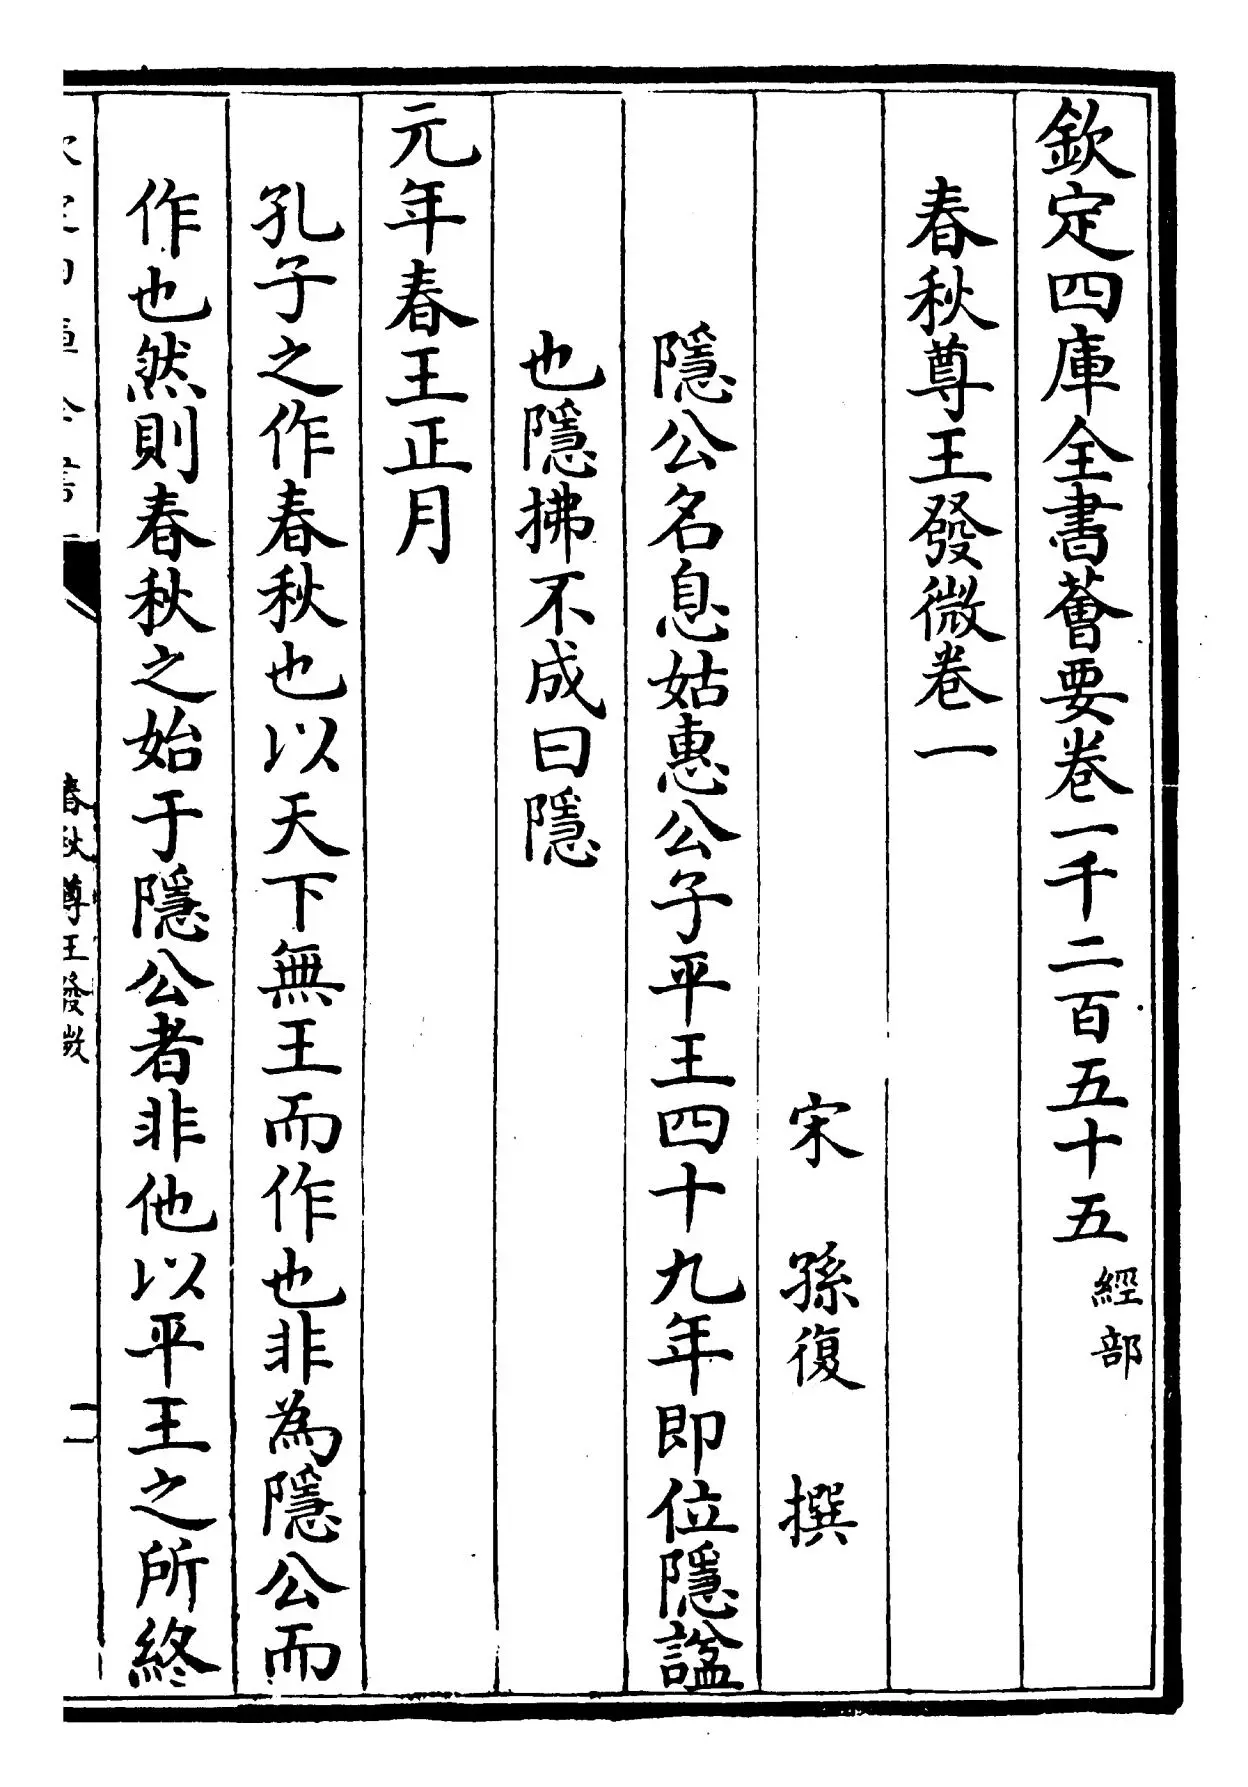 欽定四庫全書薈要卷一千二百五十五經部
春秋尊王發微卷一
宋 孫復 撰
隱公名息姑惠公子平王四十九年即位隱諡
也隱拂不成曰隱
元年春王正月
孔子之作春秋也以天下無王而作也非為隱公而
作也然則春秋之始于隱公者非他以平王之所終
春秋尊王發微